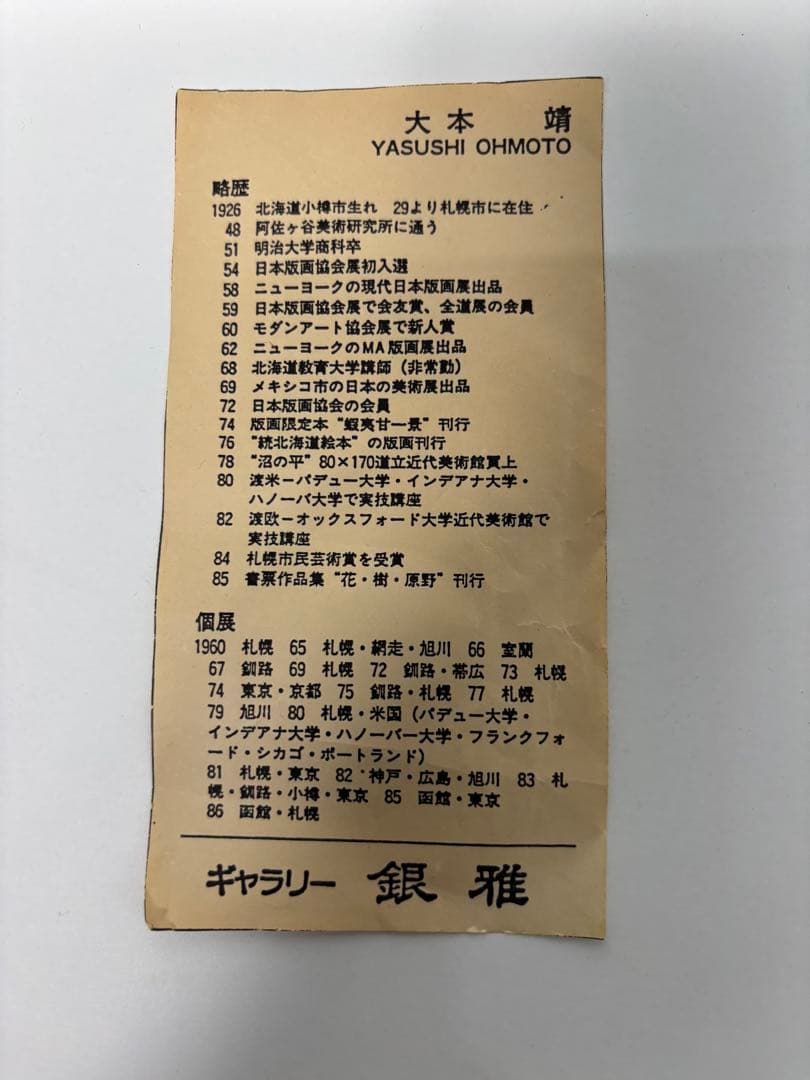 大本 靖
YASUSHI OHMOTO
略歴
1926 北海道小樽市生れ 29より札幌市に在住
48 阿佐ヶ谷美術研究所に通う
51 明治大学商科卒
54 日本版画協会展初入選
58 ニューヨークの現代日本版画展出品
59 日本版画協会展で会友賞、全道展の会員
60 モダンアート協会展で新人賞
62 ニューヨークのMA版画展出品
68 北海道教育大学講師(非常勤)
69 メキシコ市の日本の美術展出品
72 日本版画協会の会員
74 版画限定本“蝦夷廿一景”刊行
76 “続北海道絵本”の版画刊行
78 “沼の平”80×170道立近代美術館買上
80 渡米−パデュー大学・インデアナ大学・
ハノーバ大学で実技講座
82 渡欧−オックスフォード大学近代美術館で
実技講座
84 札幌市民芸術賞を受賞
85 書票作品集“花・樹・原野”刊行
個展
1960 札幌 65 札幌・網走・旭川 66 室蘭
67 釧路 69 札幌 72 釧路・帯広 73 札幌
74 東京・京都 75 釧路・札幌 77 札幌
79 旭川 80 札幌・米国(パデュー大学・
インデアナ大学・ハノーバー大学・フランクフォ
ード・シカゴ・ポートランド)
81 札幌・東京 82 神戸・広島・旭川 83 札
幌・釧路・小樽・東京 85 函館・東京
86 函館・札幌
ギャラリー 銀雅